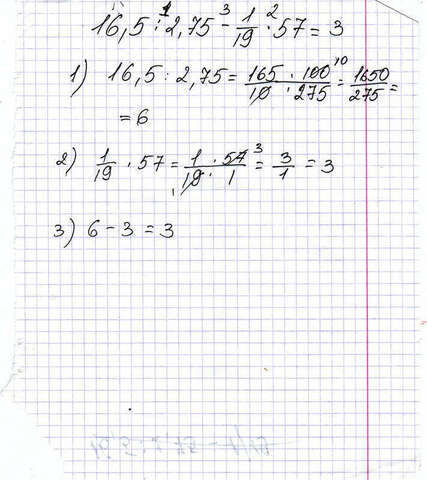 16,5 : 2,75 - 1/19 · 57 = 3
1) 16,5 : 2,75 = 165 · 100/10 · 275 = 1650/275 =
= 6
2) 1/19 · 57 = 1 · 57/19 · 1 = 3/1 = 3
3) 6 - 3 = 3